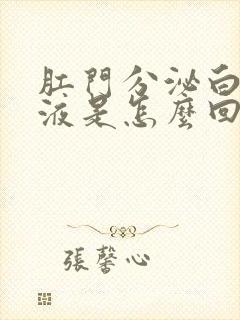 肛門分泌白
液是怎麼回
張馨心